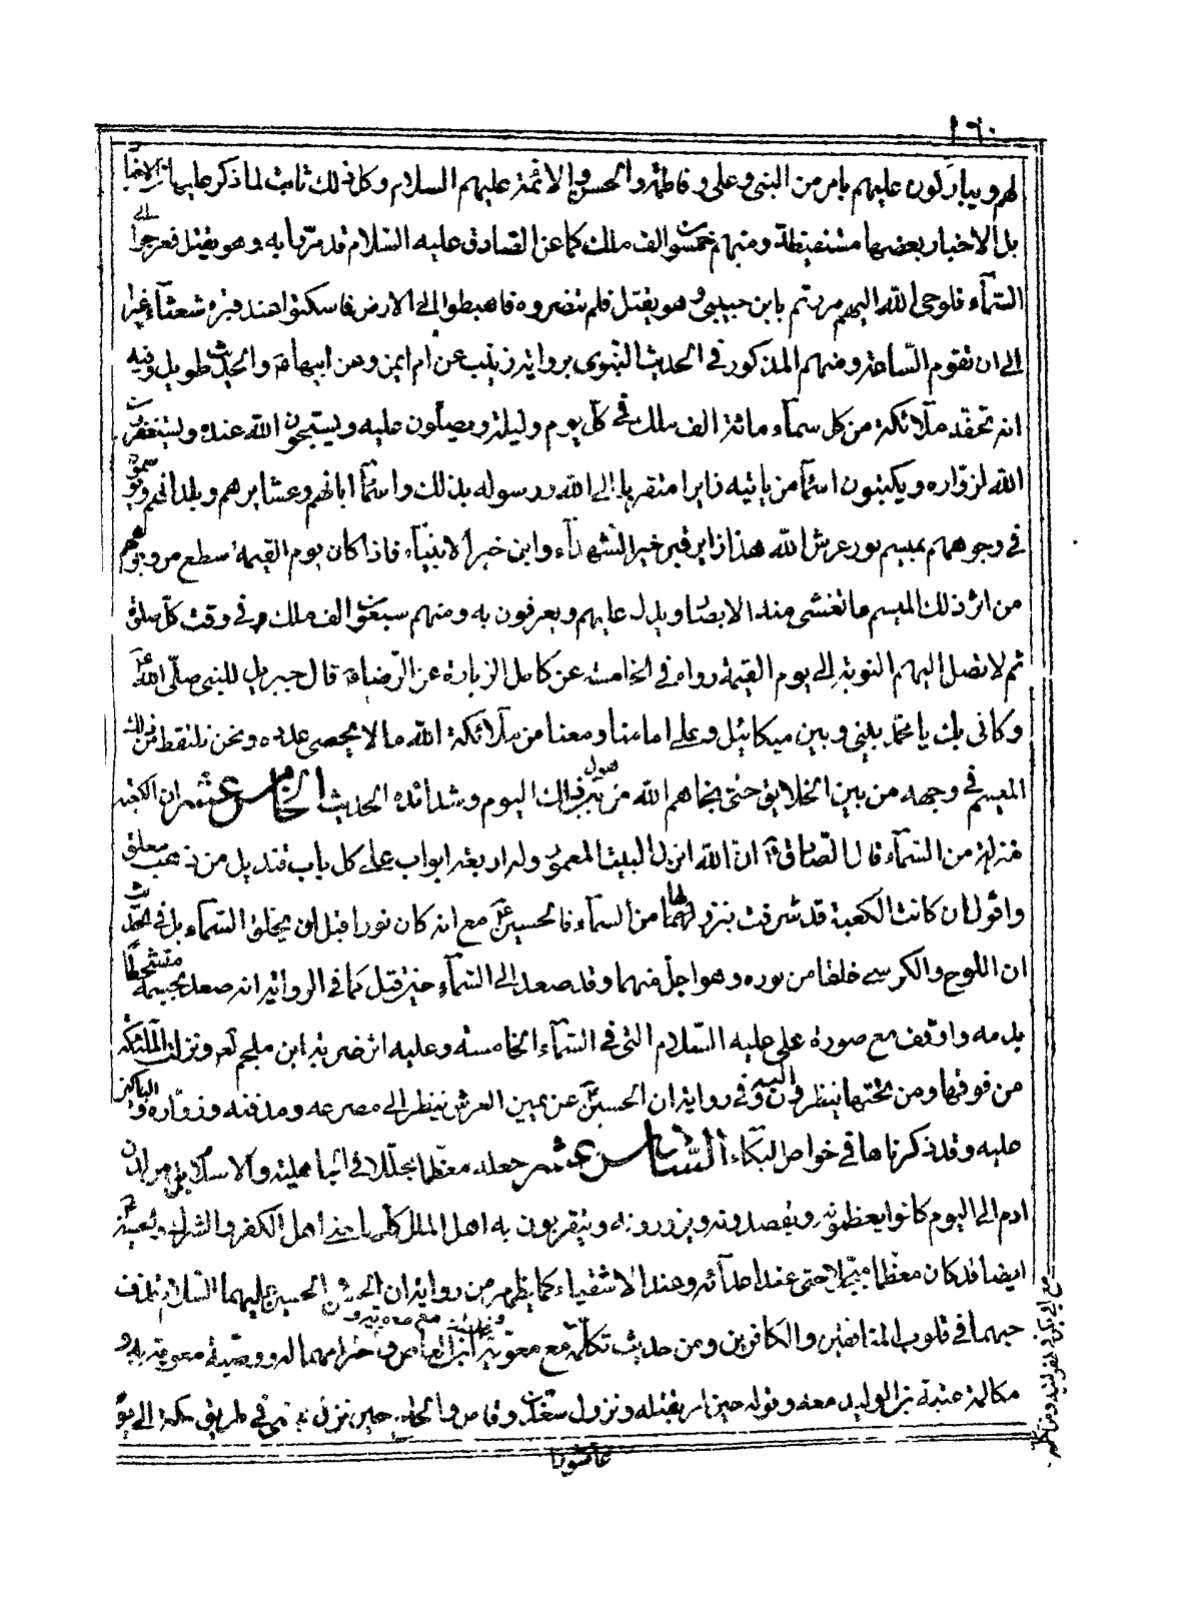 ١٦٠
لهم ويباركون عليهم بامر من النبى وعلى وفاطمة والحسن والائمة عليهم السلام وكل ذلك ثابت لما ذكر عليها الاخبار
بل الاخبار بعضها مستفيضة ومنهم خمسون الف ملك كما عن الصادق عليه السلام قد مرّوا به وهو يقتل فعرجوا الى
السّمآء فاوحى الله اليهم مررتم بابن حبيبى وهو يقتل فلم تنصروه فاهبطوا الى الارض فاسكنوا عند قبره شعثآء غبرا
الى ان تقوم السّاعة ومنهم المذكور فى الحديث النبوى برواية زينب عن ام ايمن وعن ابيها ع والحديث طويل وفيه
انه تحفه ملآئكة من كل سمآء مائة الف ملك فى كلّ يوم وليلة ويصلّون عليه ويسبّحون الله عنده ويستغفرون
الله لزوّاره ويكتبون اسمآء من ياتيه زايرا متقربا الى الله ورسوله بذلك واسمآء ابائهم وعشايرهم وبلدانهم ويوسمون
فى وجوههم بميسم نور عرش الله هذا زاير قبر خير الشهدآء وابن خير الانبيآء فاذا كان يوم القيمة سطع من وجوههم
من اثر ذلك الميسم ما تغشى منه الابصار ويدل عليهم ويعرفون به ومنهم سبعون الف ملك فى وقت كلّ صلوة
ثم لا تصل اليهم النوبة الى يوم القيمة رواه فى الخامسة عن كامل الزيارة عن الرّضا ع قال جبريل للنبى صلّى الله
وكانى بك يا محمّد بينى وبين ميكائيل وعلى امامنا ومعنا من ملآئكة الله ما لا يحصى عدده ونحن نلتقط من ذلك
الميسم فى وجهه من بين الخلايق حتى ينجاهم الله من هول ذلك اليوم وشدائده الحديث الخامس عشر ان الكعبة
منزلة من السّمآء قال الصادق ع ان الله انزل البيت المعمور وله اربعة ابواب على كل باب قنديل من ذهب معلق
واقول ان كانت الكعبة قد شرفت بنزولها من السمآء فالحسين ع مع انه كان نورا قبل ان يخلق السمآء بل فى الحديث
ان اللوح والكرسى خلقا من نوره وهو اجلّ منهما وقد صعد الى السّمآء حين قتل كما فى الرواية انه صعد بجسمه متشحطا
بدمه واوقف مع صورة على عليه السّلام التى فى السّمآء الخامسة وعليه اثر ضربة ابن ملجم لعنه ونزلت الملئكة
من فوقها ومن تحتها ينظرون اليه وفى رواية ان الحسين ع عن يمين العرش ينظر الى مصرعه ومدفنه وزوّاره والباكين
عليه وقد ذكرناها فى خواص البكآء السّادس عشر جعله معظما مجلّلا فى الجاهلية والاسلام من لدن
ادم الى اليوم كانوا يعظمونه ويقصدونه ويزورونه ويتقربون به اهل الملل كلّها حتى اهل الكفر والشرك والحسين ع
ايضا قد كان معظما مبجّلا حتى عند اعدآئه وعند الاشقياء كما يظهر من رواية ان الحسن والحسين عليهما السّلام قذف
حبهما فى قلوب المنافقين والكافرين ومن حديث تكلّمه مع معوية
مكالمة عتبة بن الوليد معه وقوله حين امر بقتله ونزول سعد بن وقاص حين نزل فى طريق مكة الى
عاشورا